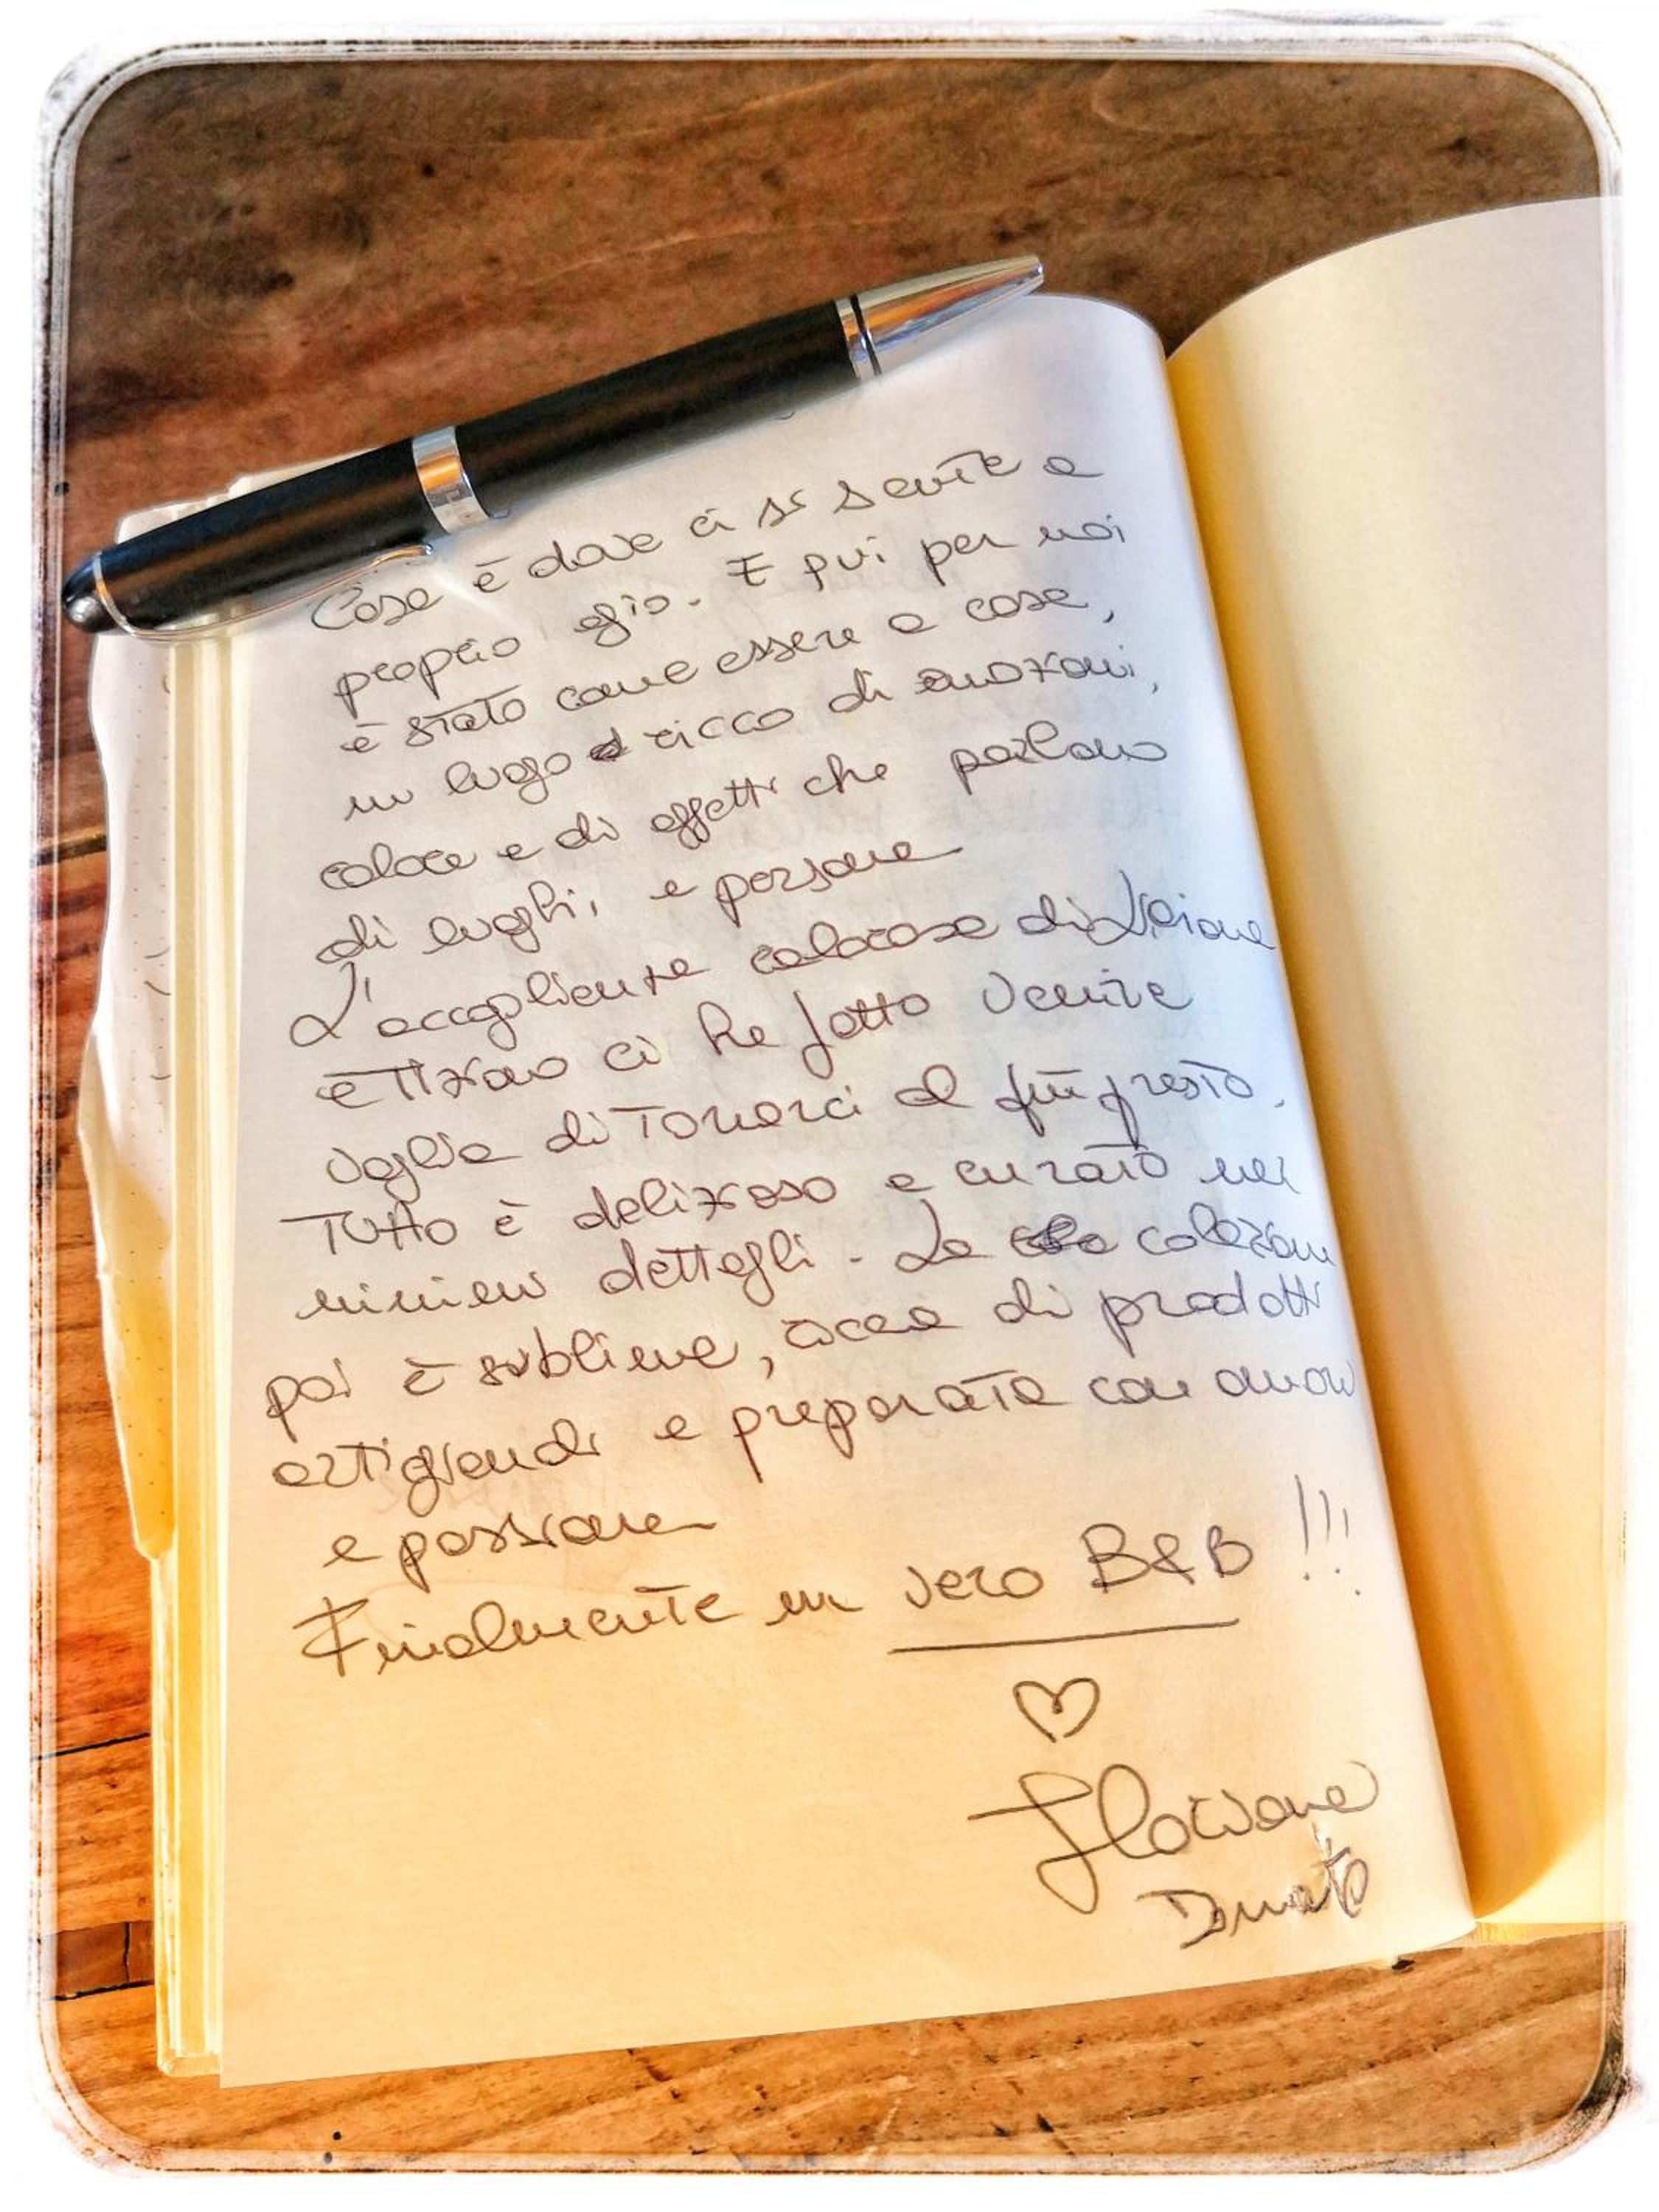 Casa è dove ci si sente a
proprio agio. E qui per noi
è stato come essere a casa,
un luogo ricco di emozioni,
calore e di oggetti che parlano
di luoghi, e persone
L'accoglienza calorosa di
e Tiziano ci ha fatto venire
voglia di tornarci al più presto.
Tutto è delizioso e curato nei
minimi dettagli. La colazione
poi è sublime, ricca di prodotti
artigianali e preparata con amore
e passione
Finalmente un vero B&B !!!
Floriana
Donato